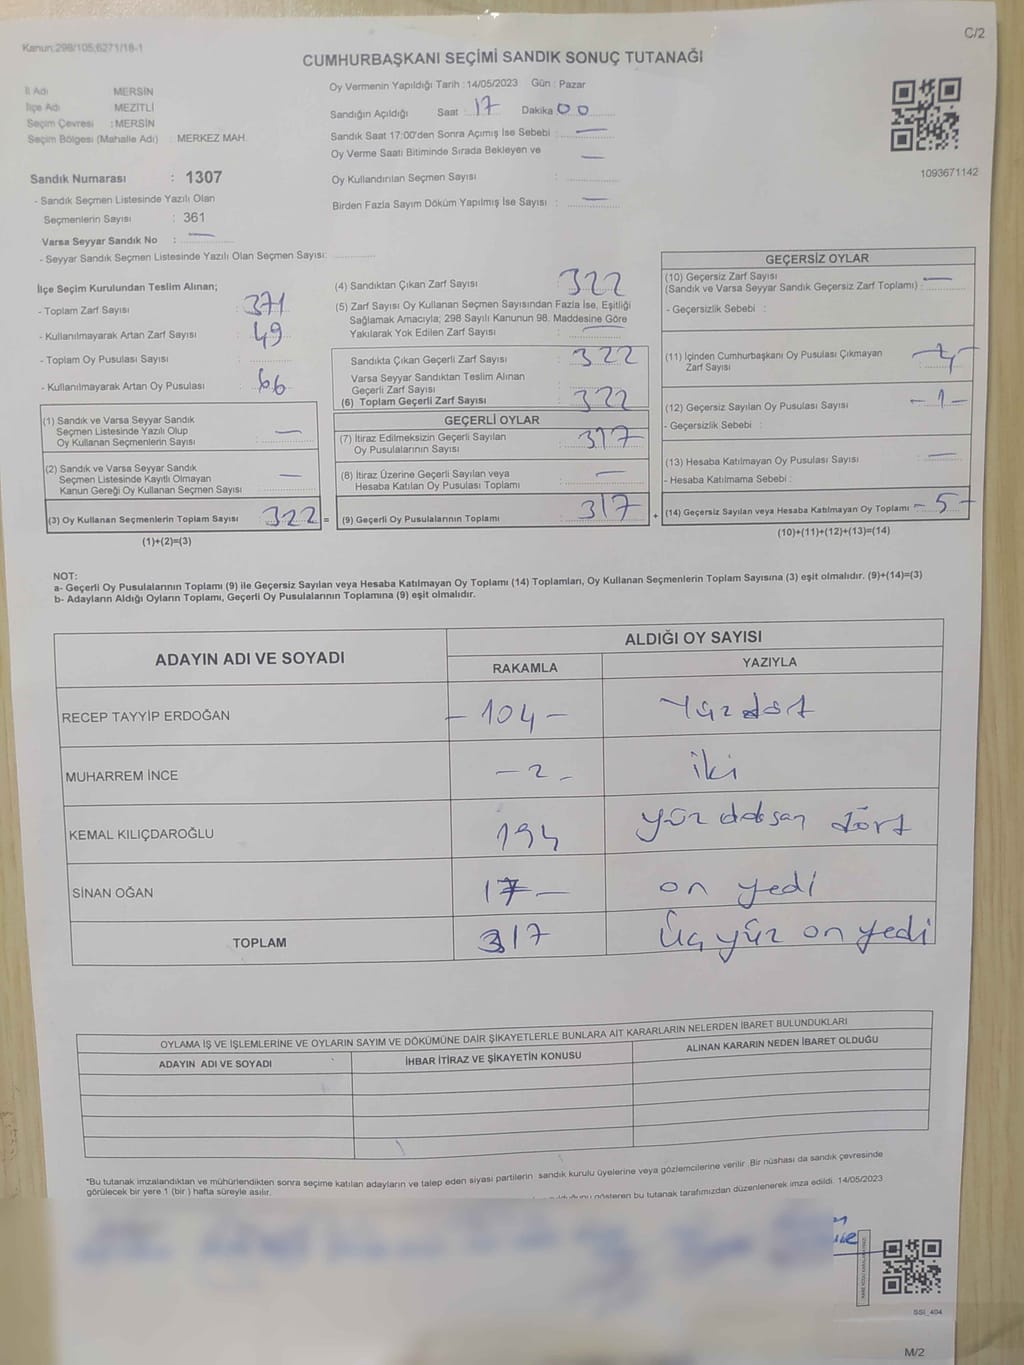 C/2
Kanun:298/105;6271/18-1
CUMHURBAŞKANI SEÇİMİ SANDIK SONUÇ TUTANAĞI
İl Adı MERSİN
İlçe Adı MEZİTLİ
Seçim Çevresi : MERSİN
Seçim Bölgesi (Mahalle Adı) : MERKEZ MAH.
Sandık Numarası : 1307
- Sandık Seçmen Listesinde Yazılı Olan
Seçmenlerin Sayısı : 361
Varsa Seyyar Sandık No : —
- Seyyar Sandık Seçmen Listesinde Yazılı Olan Seçmen Sayısı:
Oy Vermenin Yapıldığı Tarih : 14/05/2023 Gün : Pazar
Sandığın Açıldığı Saat : 17 Dakika 00
Sandık Saat 17:00'den Sonra Açımış İse Sebebi : —
Oy Verme Saati Bitiminde Sırada Bekleyen ve —
Oy Kullandırılan Seçmen Sayısı :
Birden Fazla Sayım Döküm Yapılmış İse Sayısı : —
1093671142
İlçe Seçim Kurulundan Teslim Alınan;
- Toplam Zarf Sayısı : 371
- Kullanılmayarak Artan Zarf Sayısı : 49
- Toplam Oy Pusulası Sayısı :
- Kullanılmayarak Artan Oy Pusulası : 66
(1) Sandık ve Varsa Seyyar Sandık
Seçmen Listesinde Yazılı Olup
Oy Kullanan Seçmenlerin Sayısı : —
(2) Sandık ve Varsa Seyyar Sandık
Seçmen Listesinde Kayıtlı Olmayan
Kanun Gereği Oy Kullanan Seçmen Sayısı : —
(3) Oy Kullanan Seçmenlerin Toplam Sayısı : 322 =
(1)+(2)=(3)
(4) Sandıktan Çıkan Zarf Sayısı : 322
(5) Zarf Sayısı Oy Kullanan Seçmen Sayısından Fazla İse, Eşitliği
Sağlamak Amacıyla; 298 Sayılı Kanunun 98. Maddesine Göre
Yakılarak Yok Edilen Zarf Sayısı : —
Sandıkta Çıkan Geçerli Zarf Sayısı : 322
Varsa Seyyar Sandıktan Teslim Alınan
Geçerli Zarf Sayısı :
(6) Toplam Geçerli Zarf Sayısı : 322
GEÇERLİ OYLAR
(7) İtiraz Edilmeksizin Geçerli Sayılan
Oy Pusulalarının Sayısı : 317
(8) İtiraz Üzerine Geçerli Sayılan veya
Hesaba Katılan Oy Pusulası Toplamı : —
(9) Geçerli Oy Pusulalarının Toplamı : 317 +
GEÇERSİZ OYLAR
(10) Geçersiz Zarf Sayısı —
(Sandık ve Varsa Seyyar Sandık Geçersiz Zarf Toplamı) :
- Geçersizlik Sebebi :
(11) İçinden Cumhurbaşkanı Oy Pusulası Çıkmayan
Zarf Sayısı : -4-
(12) Geçersiz Sayılan Oy Pusulası Sayısı : -1-
- Geçersizlik Sebebi :
(13) Hesaba Katılmayan Oy Pusulası Sayısı : —
- Hesaba Katılmama Sebebi :
(14) Geçersiz Sayılan veya Hesaba Katılmayan Oy Toplamı -5-
(10)+(11)+(12)+(13)=(14)
NOT:
a- Geçerli Oy Pusulalarının Toplamı (9) ile Geçersiz Sayılan veya Hesaba Katılmayan Oy Toplamı (14) Toplamları, Oy Kullanan Seçmenlerin Toplam Sayısına (3) eşit olmalıdır. (9)+(14)=(3)
b- Adayların Aldığı Oyların Toplamı, Geçerli Oy Pusulalarının Toplamına (9) eşit olmalıdır.
ADAYIN ADI VE SOYADI ALDIĞI OY SAYISI
RAKAMLA YAZIYLA
RECEP TAYYİP ERDOĞAN -104- Yüz dört
MUHARREM İNCE -2- iki
KEMAL KILIÇDAROĞLU 194 yüz doksan dört
SİNAN OĞAN 17- on yedi
TOPLAM 317 Üç yüz on yedi
OYLAMA İŞ VE İŞLEMLERİNE VE OYLARIN SAYIM VE DÖKÜMÜNE DAİR ŞİKAYETLERLE BUNLARA AİT KARARLARIN NELERDEN İBARET BULUNDUKLARI
ADAYIN ADI VE SOYADI İHBAR İTİRAZ VE ŞİKAYETİN KONUSU ALINAN KARARIN NEDEN İBARET OLDUĞU
*Bu tutanak imzalandıktan ve mühürlendikten sonra seçime katılan adayların ve talep eden siyasi partilerin sandık kurulu üyelerine veya gözlemcilerine verilir. Bir nüshası da sandık çevresinde
görülecek bir yere 1 (bir) hafta süreyle asılır.
gösteren bu tutanak tarafımızdan düzenlenerek imza edildi. 14/05/2023
SSİ_404
M/2